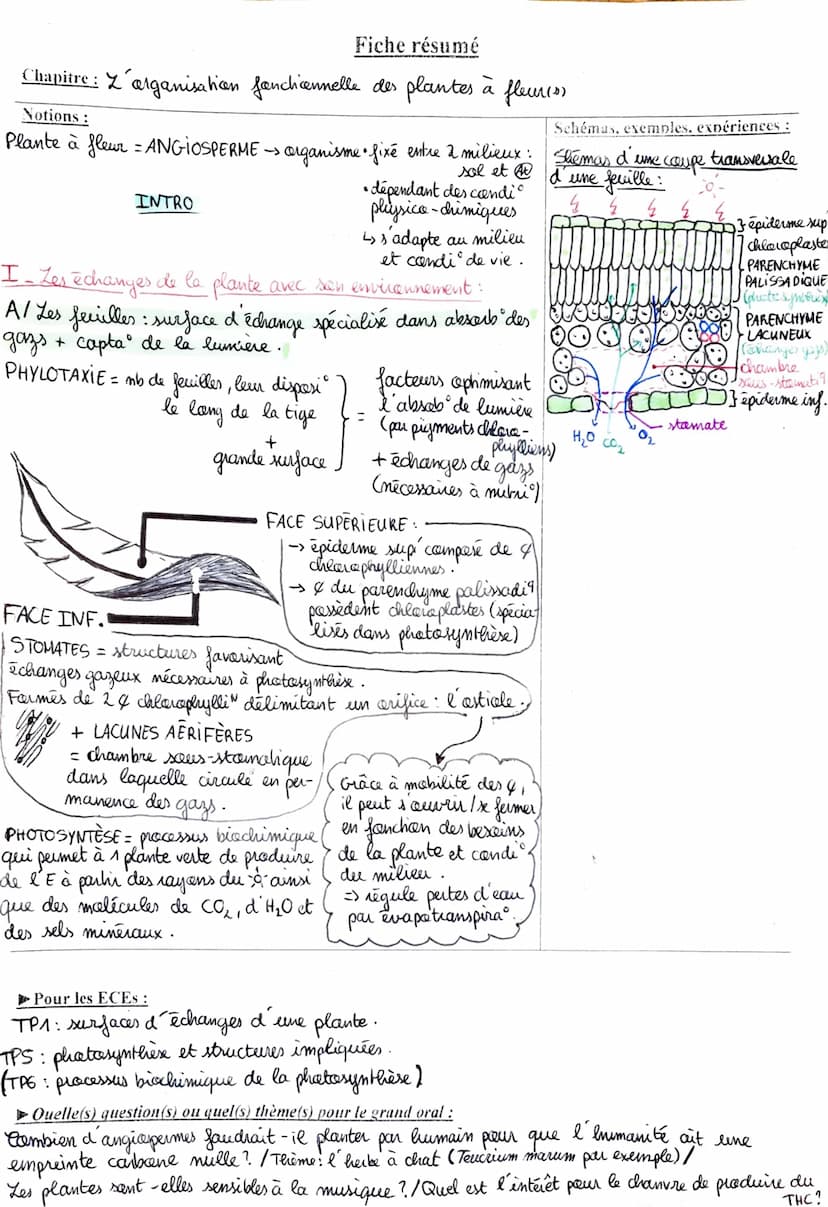 Fiche résumé
Chapitre : L'organisation fonctionnelle des plantes à fleur(s)
Notions :
Plante à fleur = ANGIOSPERME → organisme • fixé entre 2 milieux :
sol et air
• dépendant des condi°
physico-chimiques
↳ s'adapte au milieu
et condi° de vie.
INTRO
I - Les échanges de la plante avec son environnement :
A/ Les feuilles : surface d'échange spécialisé dans absorb° des
gazs + capta° de la lumière.
PHYLOTAXIE = nb de feuilles, leur disposi°
le long de la tige
+
grande surface
= facteurs optimisant
l'absorb° de lumière
(par pigments chloro-
phylliens)
+ échanges de gazs
(nécessaires à nutri°)
FACE SUPÉRIEURE :
→ épiderme sup' composé de ¢
chlorophylliennes.
→ ¢ du parenchyme palissadiq
possèdent chloroplastes (spécia-
lisés dans photosynthèse)
FACE INF.
STOMATES = structures favorisant
échanges gazeux nécessaires à photosynthèse.
Formés de 2 ¢ chlorophylliN délimitant un orifice : l'ostiole.
+ LACUNES AÉRIFÈRES
= chambre sous-stomatique
dans laquelle circule en per-
manence des gazs.
Grâce à mobilité des ¢,
il peut s'ouvrir/se fermer
en fonction des besoins
de la plante et condi°
du milieu.
=> régule pertes d'eau
par évapotranspira°.
PHOTOSYNTÈSE = processus biochimique
qui permet à 1 plante verte de produire
de l'E à partir des rayons du ☼ ainsi
que des molécules de CO₂, d'H₂O et
des sels minéraux.
Schémas, exemples, expériences :
Shémas d'une coupe transversale
d'une feuille :
épiderme sup
chloroplaste
PARENCHYME
PALISSADIQUE
(photosynthèse)
PARENCHYME
LACUNEUX
(échanges gazs)
chambre
sous-stomatiq
épiderme inf.
stomate
H₂O CO₂ O₂
► Pour les ECEs :
TP1 : surfaces d'échanges d'une plante.
TP5 : photosynthèse et structures impliquées.
(TP6 : processus biochimique de la photosynthèse)
► Quelle(s) question(s) ou quel(s) thème(s) pour le grand oral :
Combien d'angiospermes faudrait-il planter par humain pour que l'humanité ait une
empreinte carbone nulle ? / Thème : l'herbe à chat (Teucrium marum par exemple) /
Les plantes sont-elles sensibles à la musique ? / Quel est l'intérêt pour le chanvre de produire du
THC ?